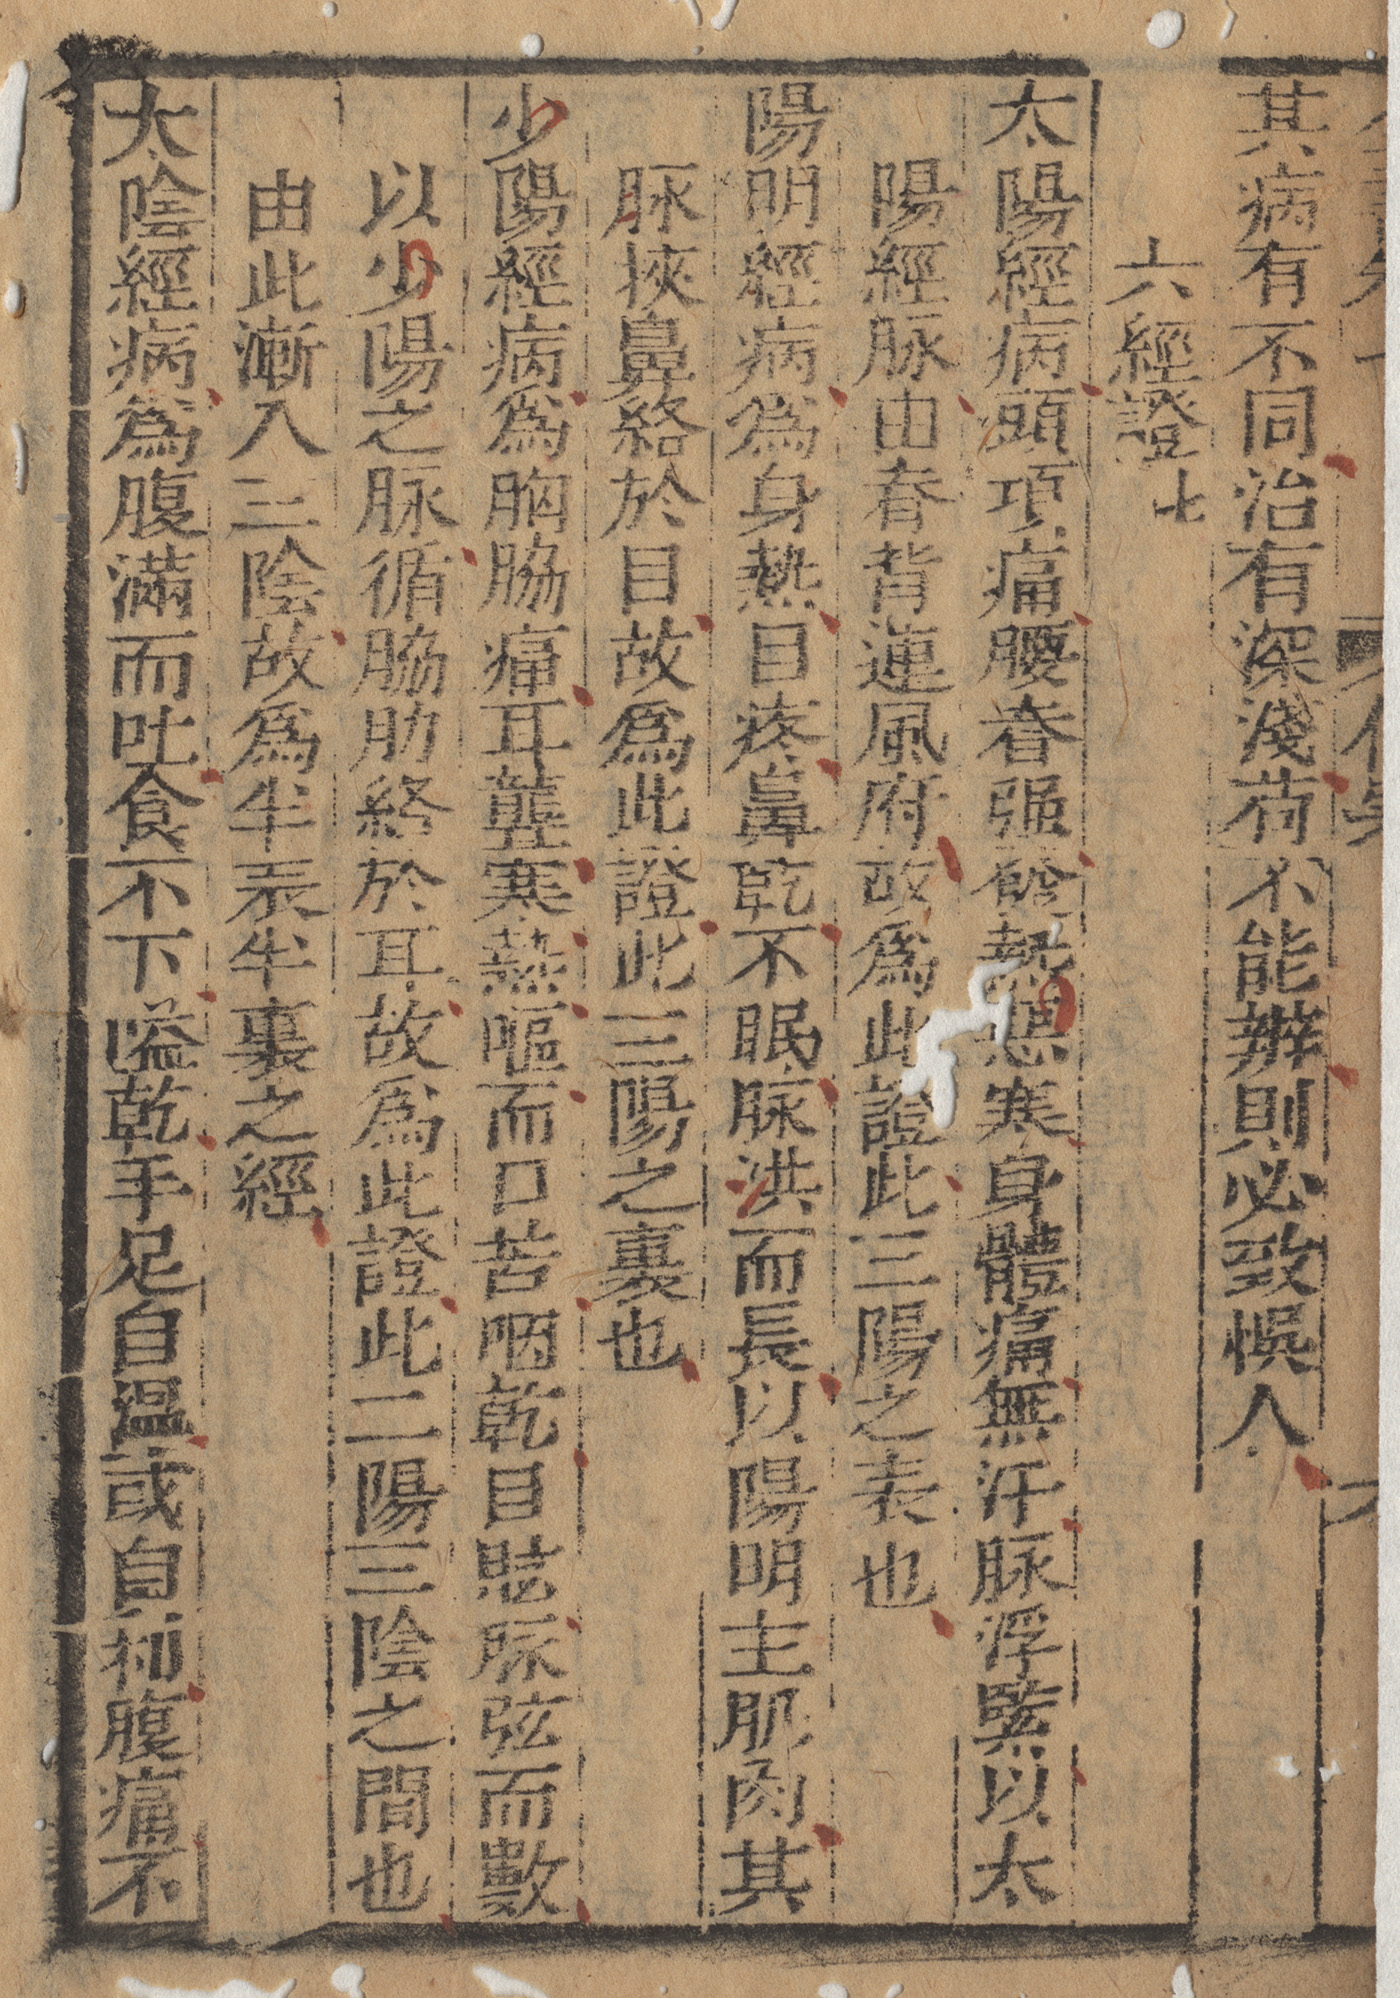 其病有不同治有深淺苟不能辨則必致悞人
六經證 七
太陽經病頭項痛腰脊强發熱惡寒身體痛無汗脉浮緊以太
陽經脉由脊背連風府故爲此證此三陽之表也
陽明經病爲身熱目疼鼻乾不眠脉洪而長以陽明主肌肉其
脉挾鼻絡於目故爲此證此三陽之裏也
少陽經病爲胸脇痛耳聾寒熱嘔而口苦咽乾目眩脉弦而數
以少陽之脉循脇肋終於耳故爲此證此二陽三陰之間也
由此漸入三陰故爲半表半裏之經
太陰經病爲腹滿而吐食不下嗌乾手足自温或自利腹痛不